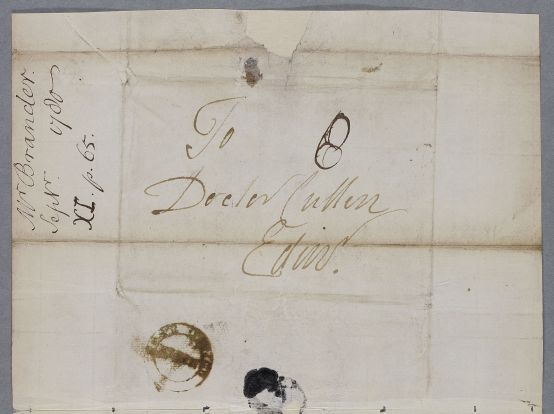 Mr Brander.
Sepr. 1780
XI. p. 65.
To
Doctor Cullen
Edinr.